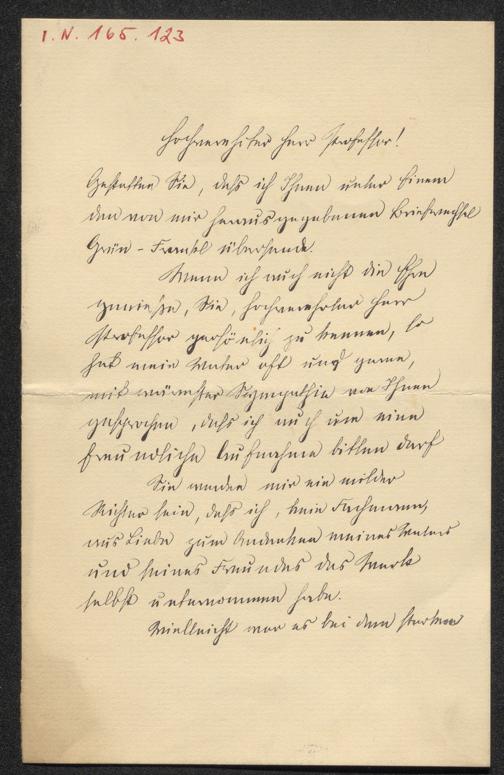 I.N. 165.123
Hochverehrter Herr Professor!
Gestatten Sie, daß ich Ihnen unter Einem
den von mir herausgegebenen Briefwechsel
Grün - Frankl übersende.
Wenn ich auch nicht die Ehre
genieße, Sie, hochverehrter Herr
Professor persönlich zu kennen, so
hat mein Vater oft und gerne,
mit wärmster Sympathie von Ihnen
gesprochen, daß ich auch um eine
freundliche Aufnahme bitten darf
Sie werden mir ein milder
Richter sein, daß ich, kein Fachmann,
aus Liebe zum Andenken meines Vaters
und seines Freundes das Werk
selbst unternommen habe.
Vielleicht war es bei dem starken